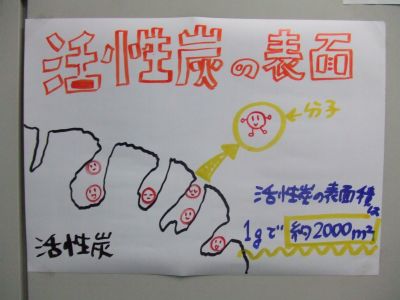 活性炭の表面
分子
活性炭の表面積は
1gで 約2000m²
活性炭